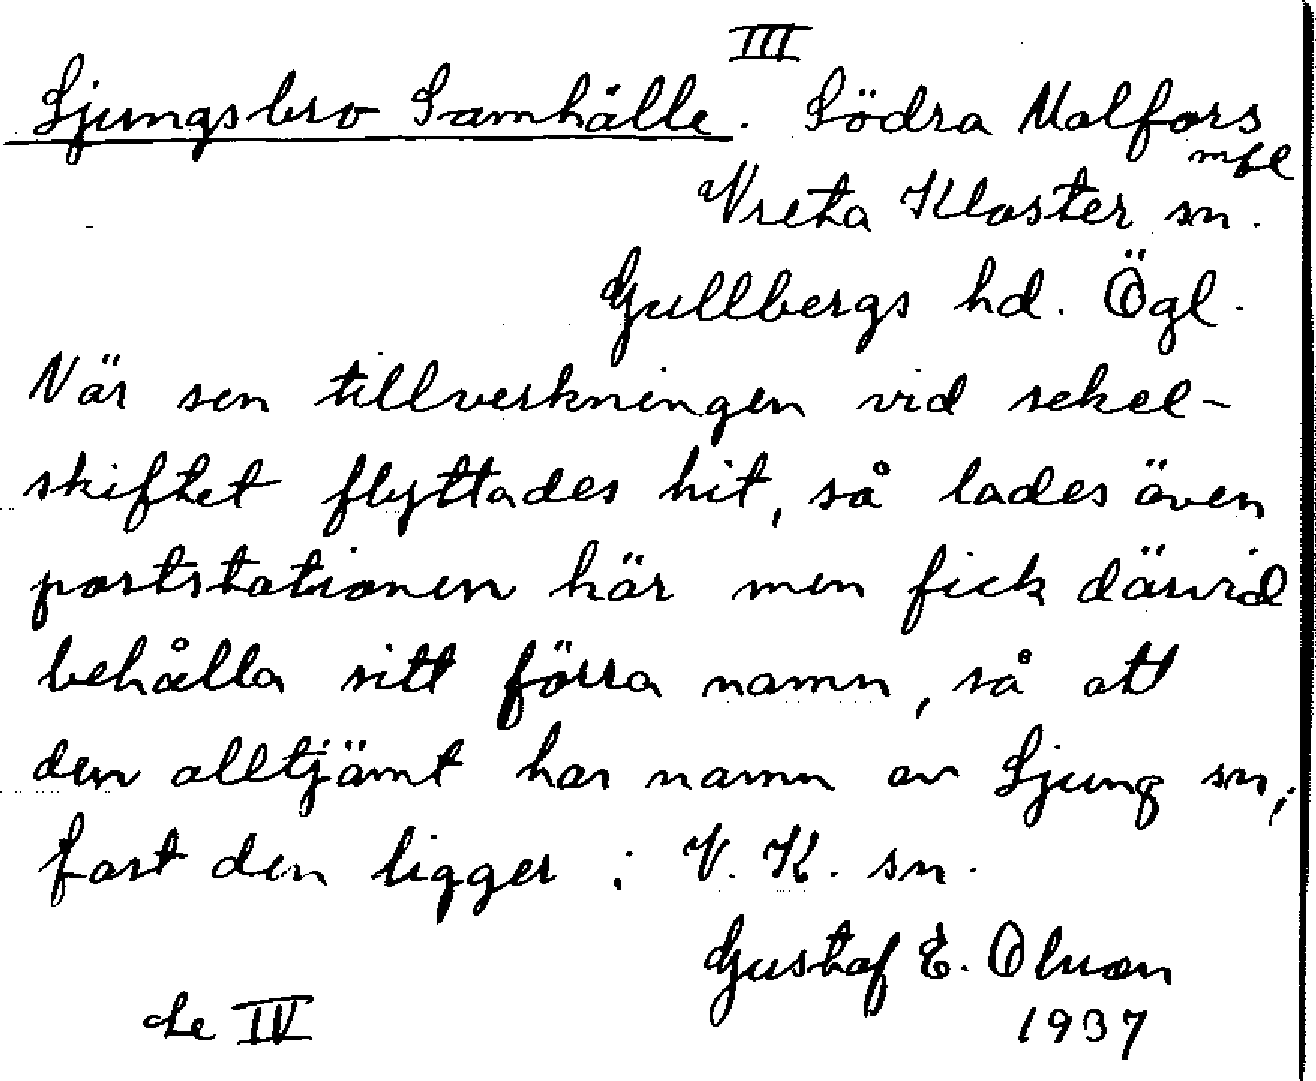 III
Ljungsbro Samhälle. Södra Malfors
mfl
Vreta Kloster sn.
Gullbergs hd. Ögl.
När sen tillverkningen vid sekel-
skiftet flyttades hit, så lades även
poststationen här men fick därvid
behålla sitt förra namn, så att
den alltjämt har namn av Ljung sn,
fast den ligger i V. K. sn.
Gustaf E. Olsson
1937
IV